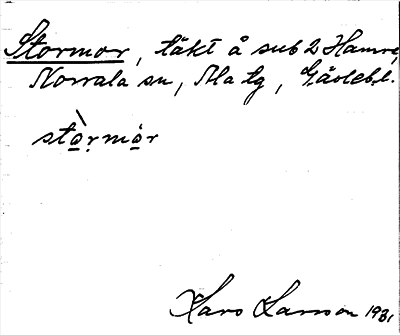 Stormor, täkt å sub 2 Hamre,
Norrala sn, Ala tg, Gävlebl.
stòrmȯr
Lars Larsson 1931